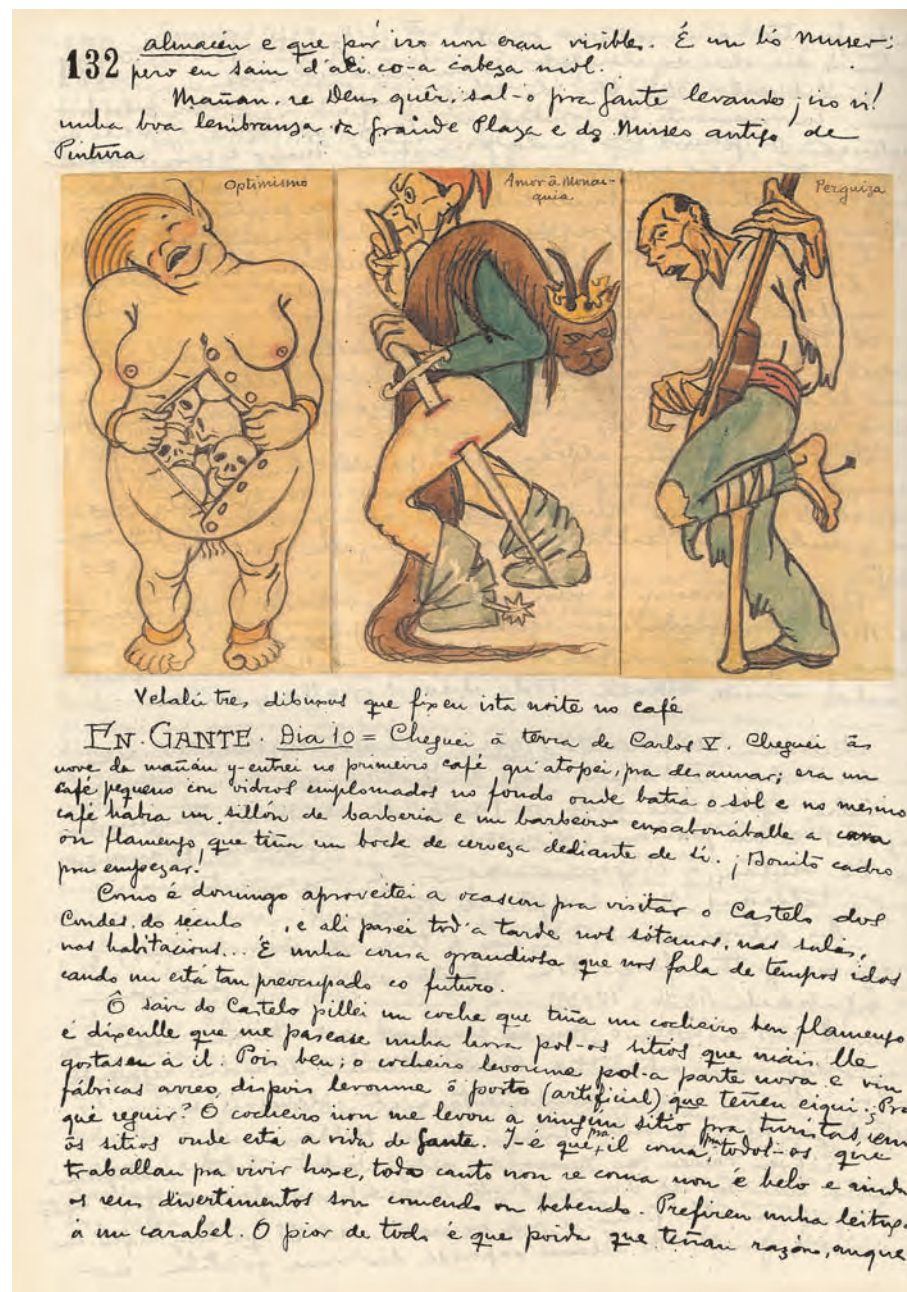 132 almacén e que por iso non eran visibles. É un bó Museo;
pero en sain d'ali co-a cabeza mol.
Mañan, se Deus quér, sal-o pra Gante levando ¡iso si!
unha boa lembranza da Grainde Plaza e do Museo antigo de
Pintura
Optimismo
Amor â Monar-
quia
Perguiza
Velahi tres dibuxos que fixen ista noite no café
EN-GANTE. Dia 10 = Cheguei â terra de Carlos V. Cheguei âs
nove da mañán y-entrei no primeiro café qu'atopei, pra desaunar; era un
café pequeno con vidros emplomados no fondo onde batia o sol e no mesmo
café habia un sillón de barberia e un barbeiro enxabonáballe a cara
ôn flamengo que tiña un bock de cerveza dediante de si. ¡Bonito cadro
pra empezar!
Como é domingo aproveitei a ocasion pra visitar o Castelo dos
Condes, do século , e ali pasei tod'a tarde nos sótanos, nas salas,
nas habitacions... É unha cousa grandiosa que nos fala de tempos idos
cando un está tan preocupado co futuro.
Ô sair do Castelo pillei un coche que tiña un cocheiro ben flamengo
e dixenlle que me pasease unha hora pol-os sitios que mais lle
gostasen â il. Pois ben; o cocheiro levoume pol-a parte nova e vin
fábricas arreo, dispois levoume ô porto (artificial) que teñen eiqui. ¿Pra
qué seguir? O cocheiro non me levou a ningun sitio pra turistas, senon
ôs sitios onde está a vida de Gante. Y-e que, pra il coma pra todol-os que
traballan pra vivir hoxe, todo canto non se coma non é belo e ainda
os seus divertimentos son comendo ou bebendo. Prefiren unha leituga
â un carabel. O pior de todo é que poida que teñan razón, anque